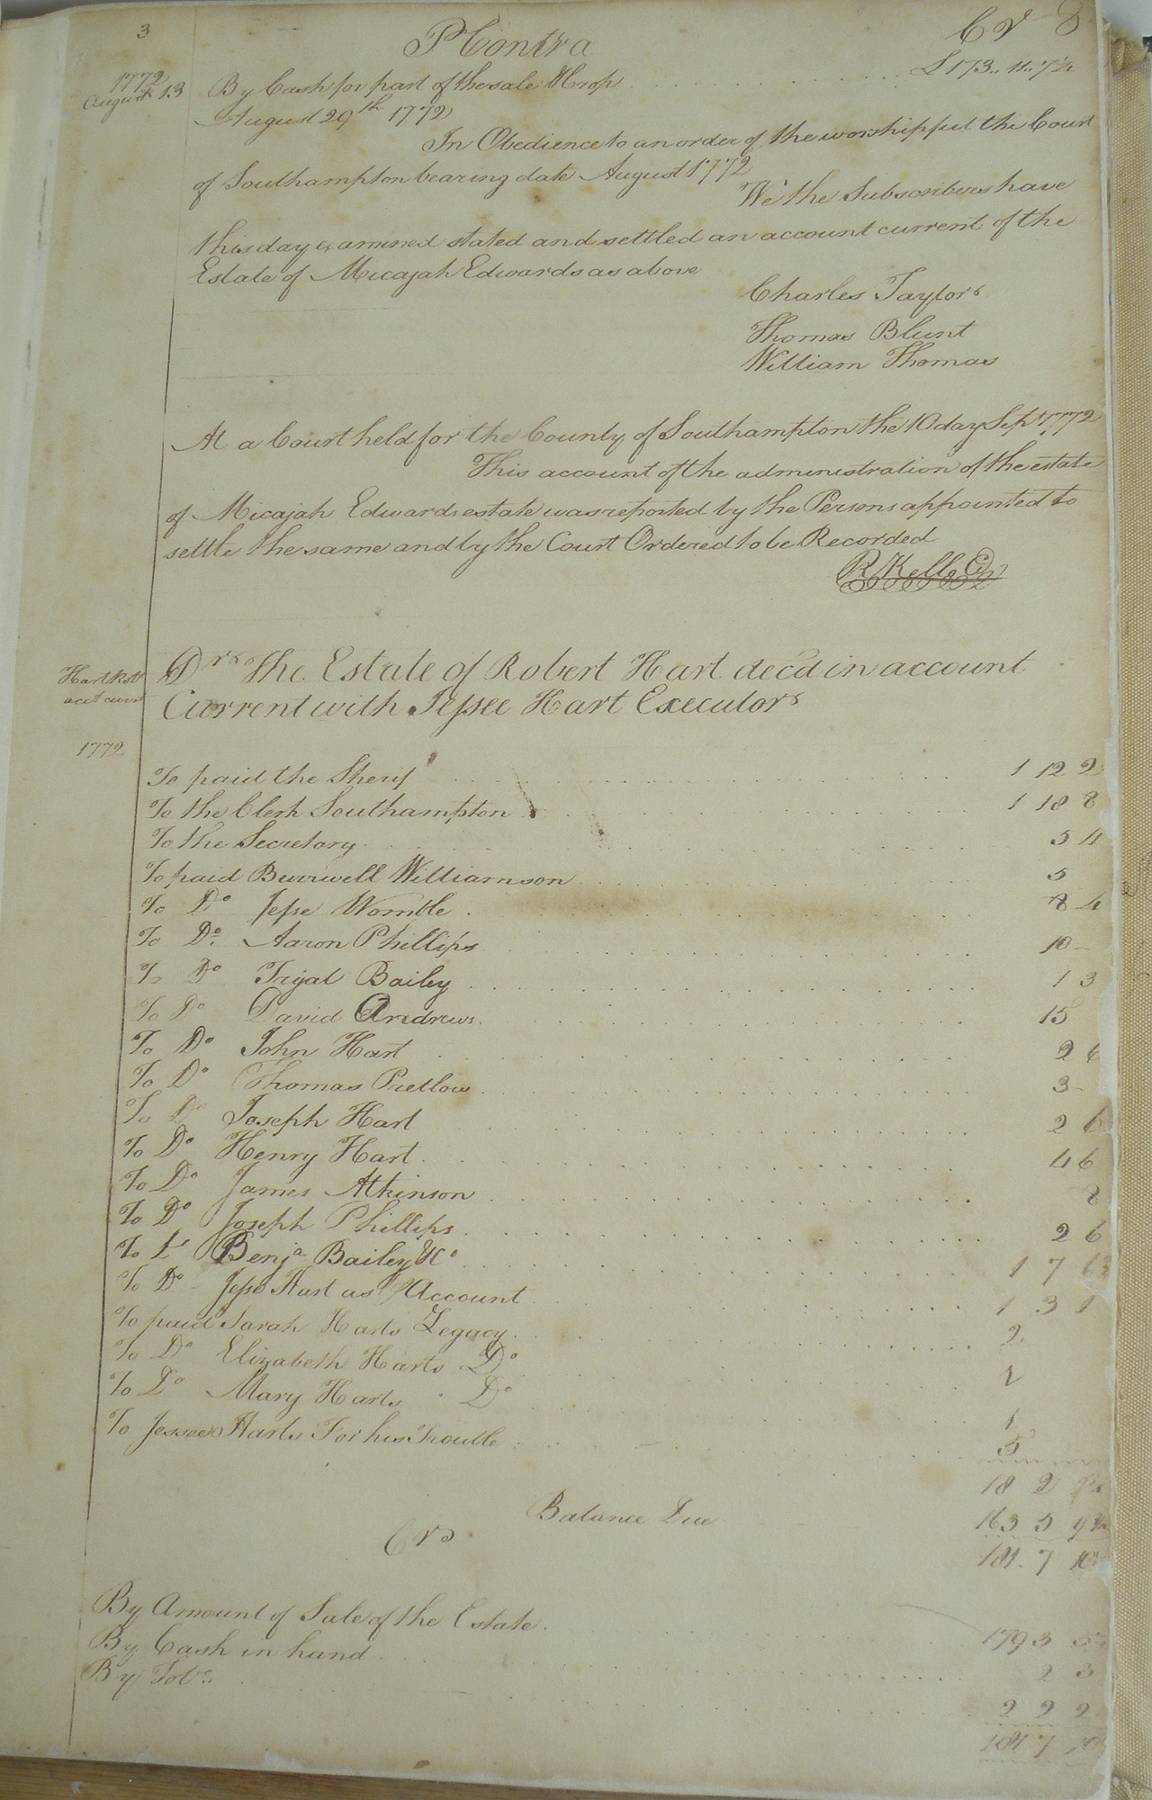 3
P Contra Cr
1772
August 13 By Cash for part of the sale & Crop £173.. 11.. 7½
August 29th 1772
In Obedience to an order of the worshipfull the Court
of Southampton bearing date August 1772
We the Subscribers have
this day examined stated and settled an account current of the
Estate of Micajah Edwards as above
Charles Taylor
Thomas Blunt
William Thomas
At a Court held for the County of Southampton the 10 day Sept 1772
This account of the administration of the estate
of Micajah Edwards estate was reported by the Persons appointed to
settle the same and by the Court Ordered to be Recorded
R Kello
Drs The Estate of Robert Hart decd in account
Current with Jessee Hart Executor
Hart Robt
acct curnt
1772
To paid the Sherif 1 12 2
To the Clerk Southampton 1 18 8
To the Secretary 5 4
To paid Burrwell Williamson 5
To Do Jesse Womble 8 4
To Do Aaron Phillips 10 -
To Do Trygal Bailey 1 3
To Do David Andrews 15
To Do John Hart 2 6
To Do Thomas Pretlow 3 -
To Do Joseph Hart 2 6
To Do Henry Hart 4 6
To Do James Atkinson 8
To Do Joseph Phillips 2 6
To Do Benja Bailey &c 1 7
To Do Jesse Hart as Account 1 3 1
To paid Sarah Harts Legacy 2
To Do Elizabeth Harts Do 1
To Do Mary Harts Do 1
To Jessee Harts For his Trouble 5
18 2
Balance Due 163 5
Crs 181 7 10
By Amount of Sale of the Estate 179 3 5
By Cash in hand 2 3
By Tobo 2 2 2
181 7 10